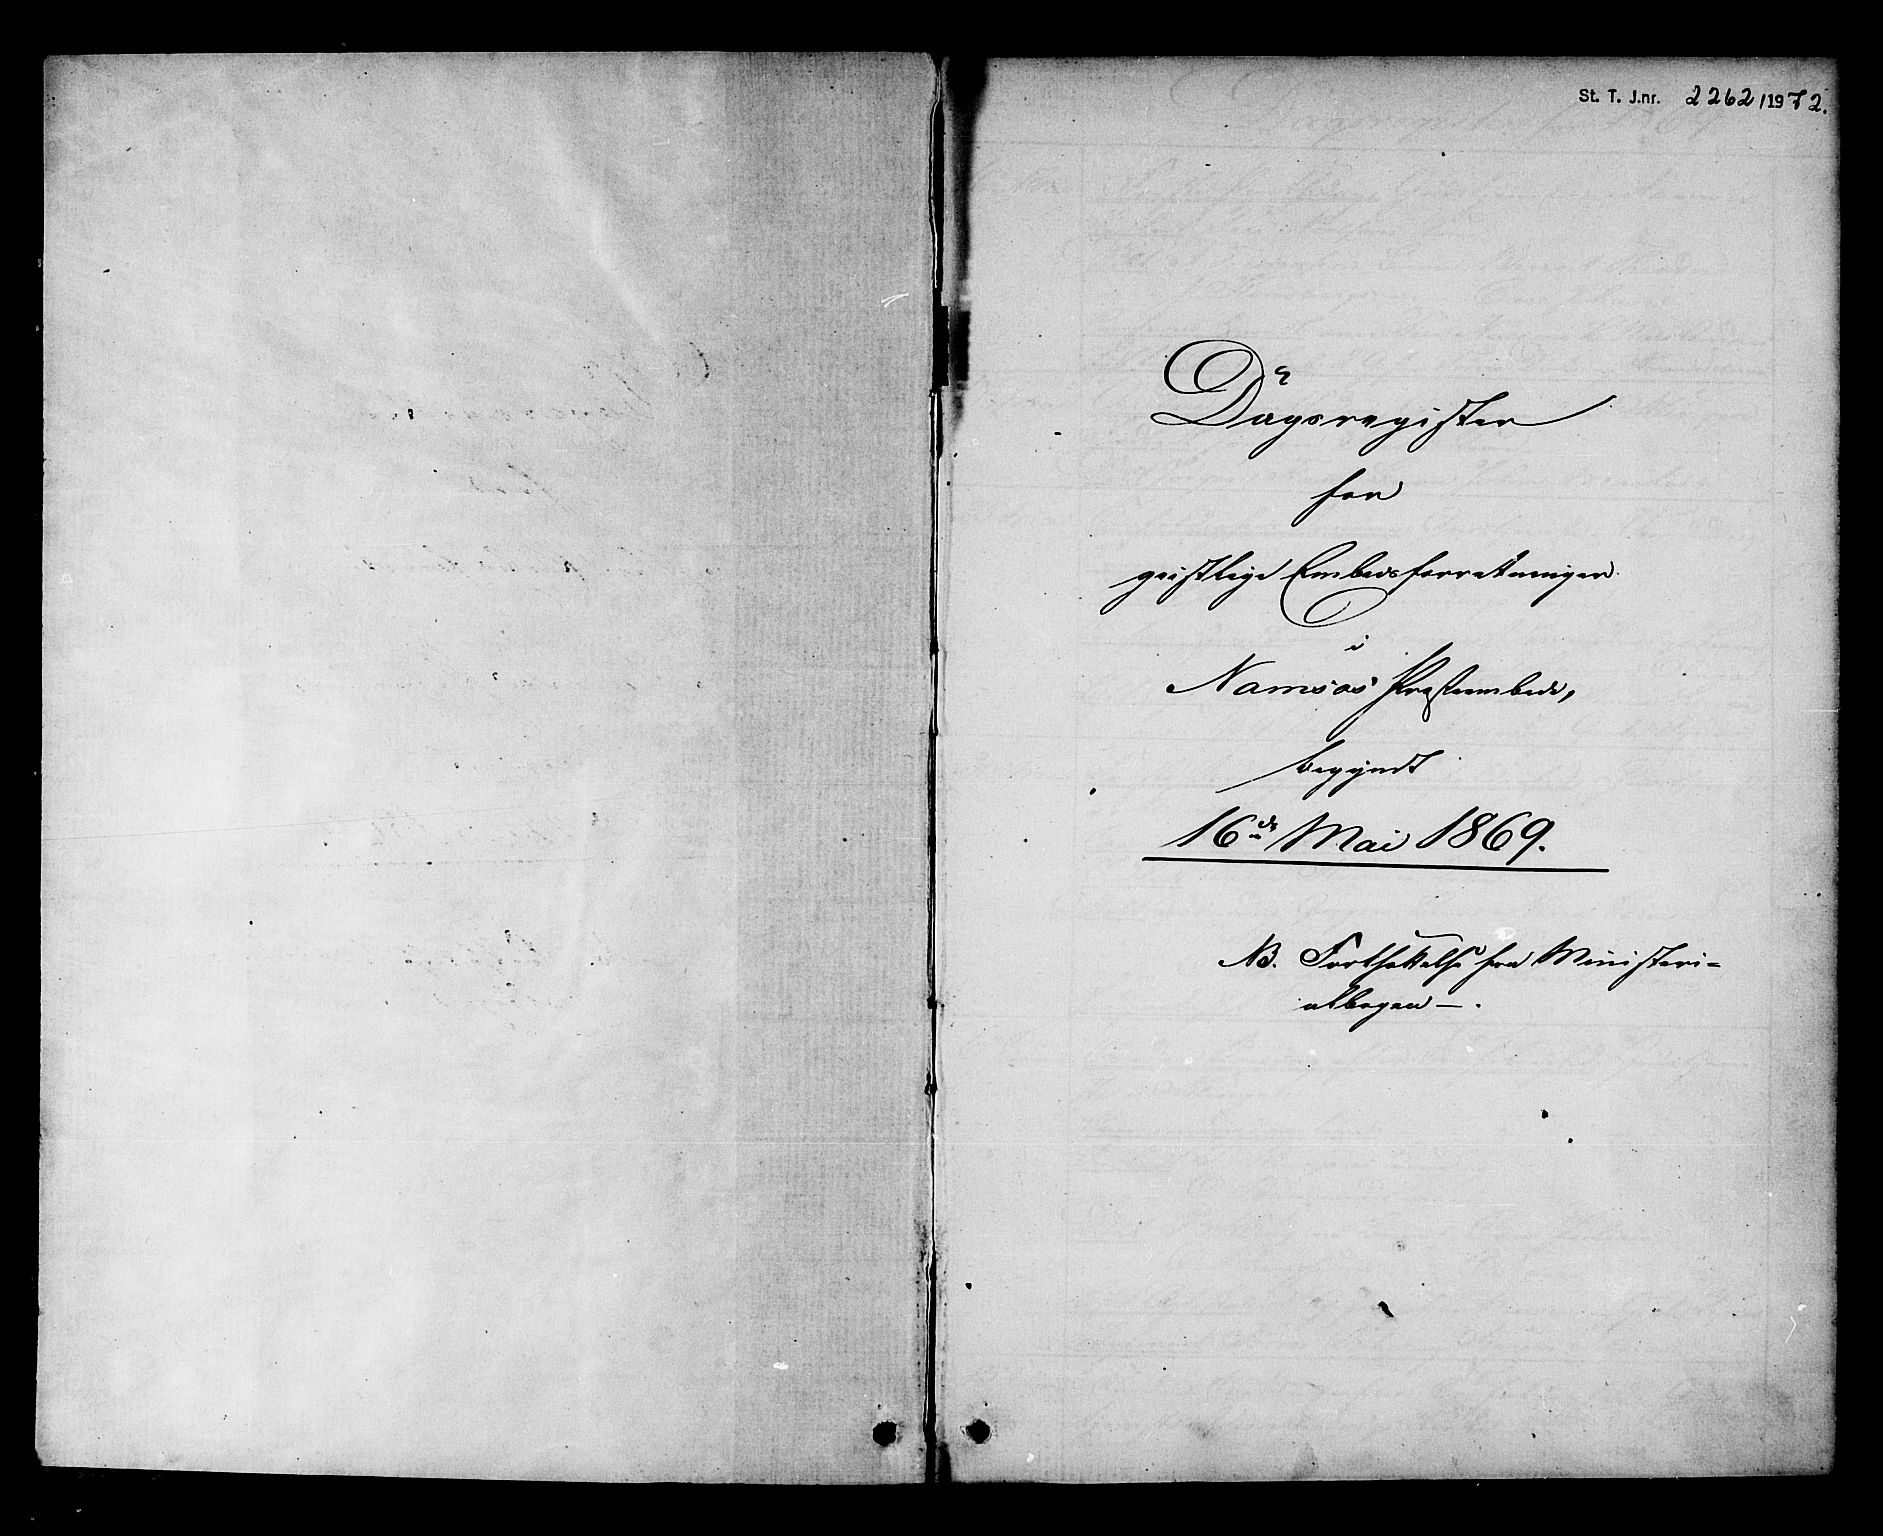 St. T. J.nr. 2262/1972.
Dagsregister
for
geistlige Embedsforretninger
i
Namsos Præstembede,
begyndt
16de Mai 1869.
NB. Fortsættelse fra Ministeri-
albogen — .